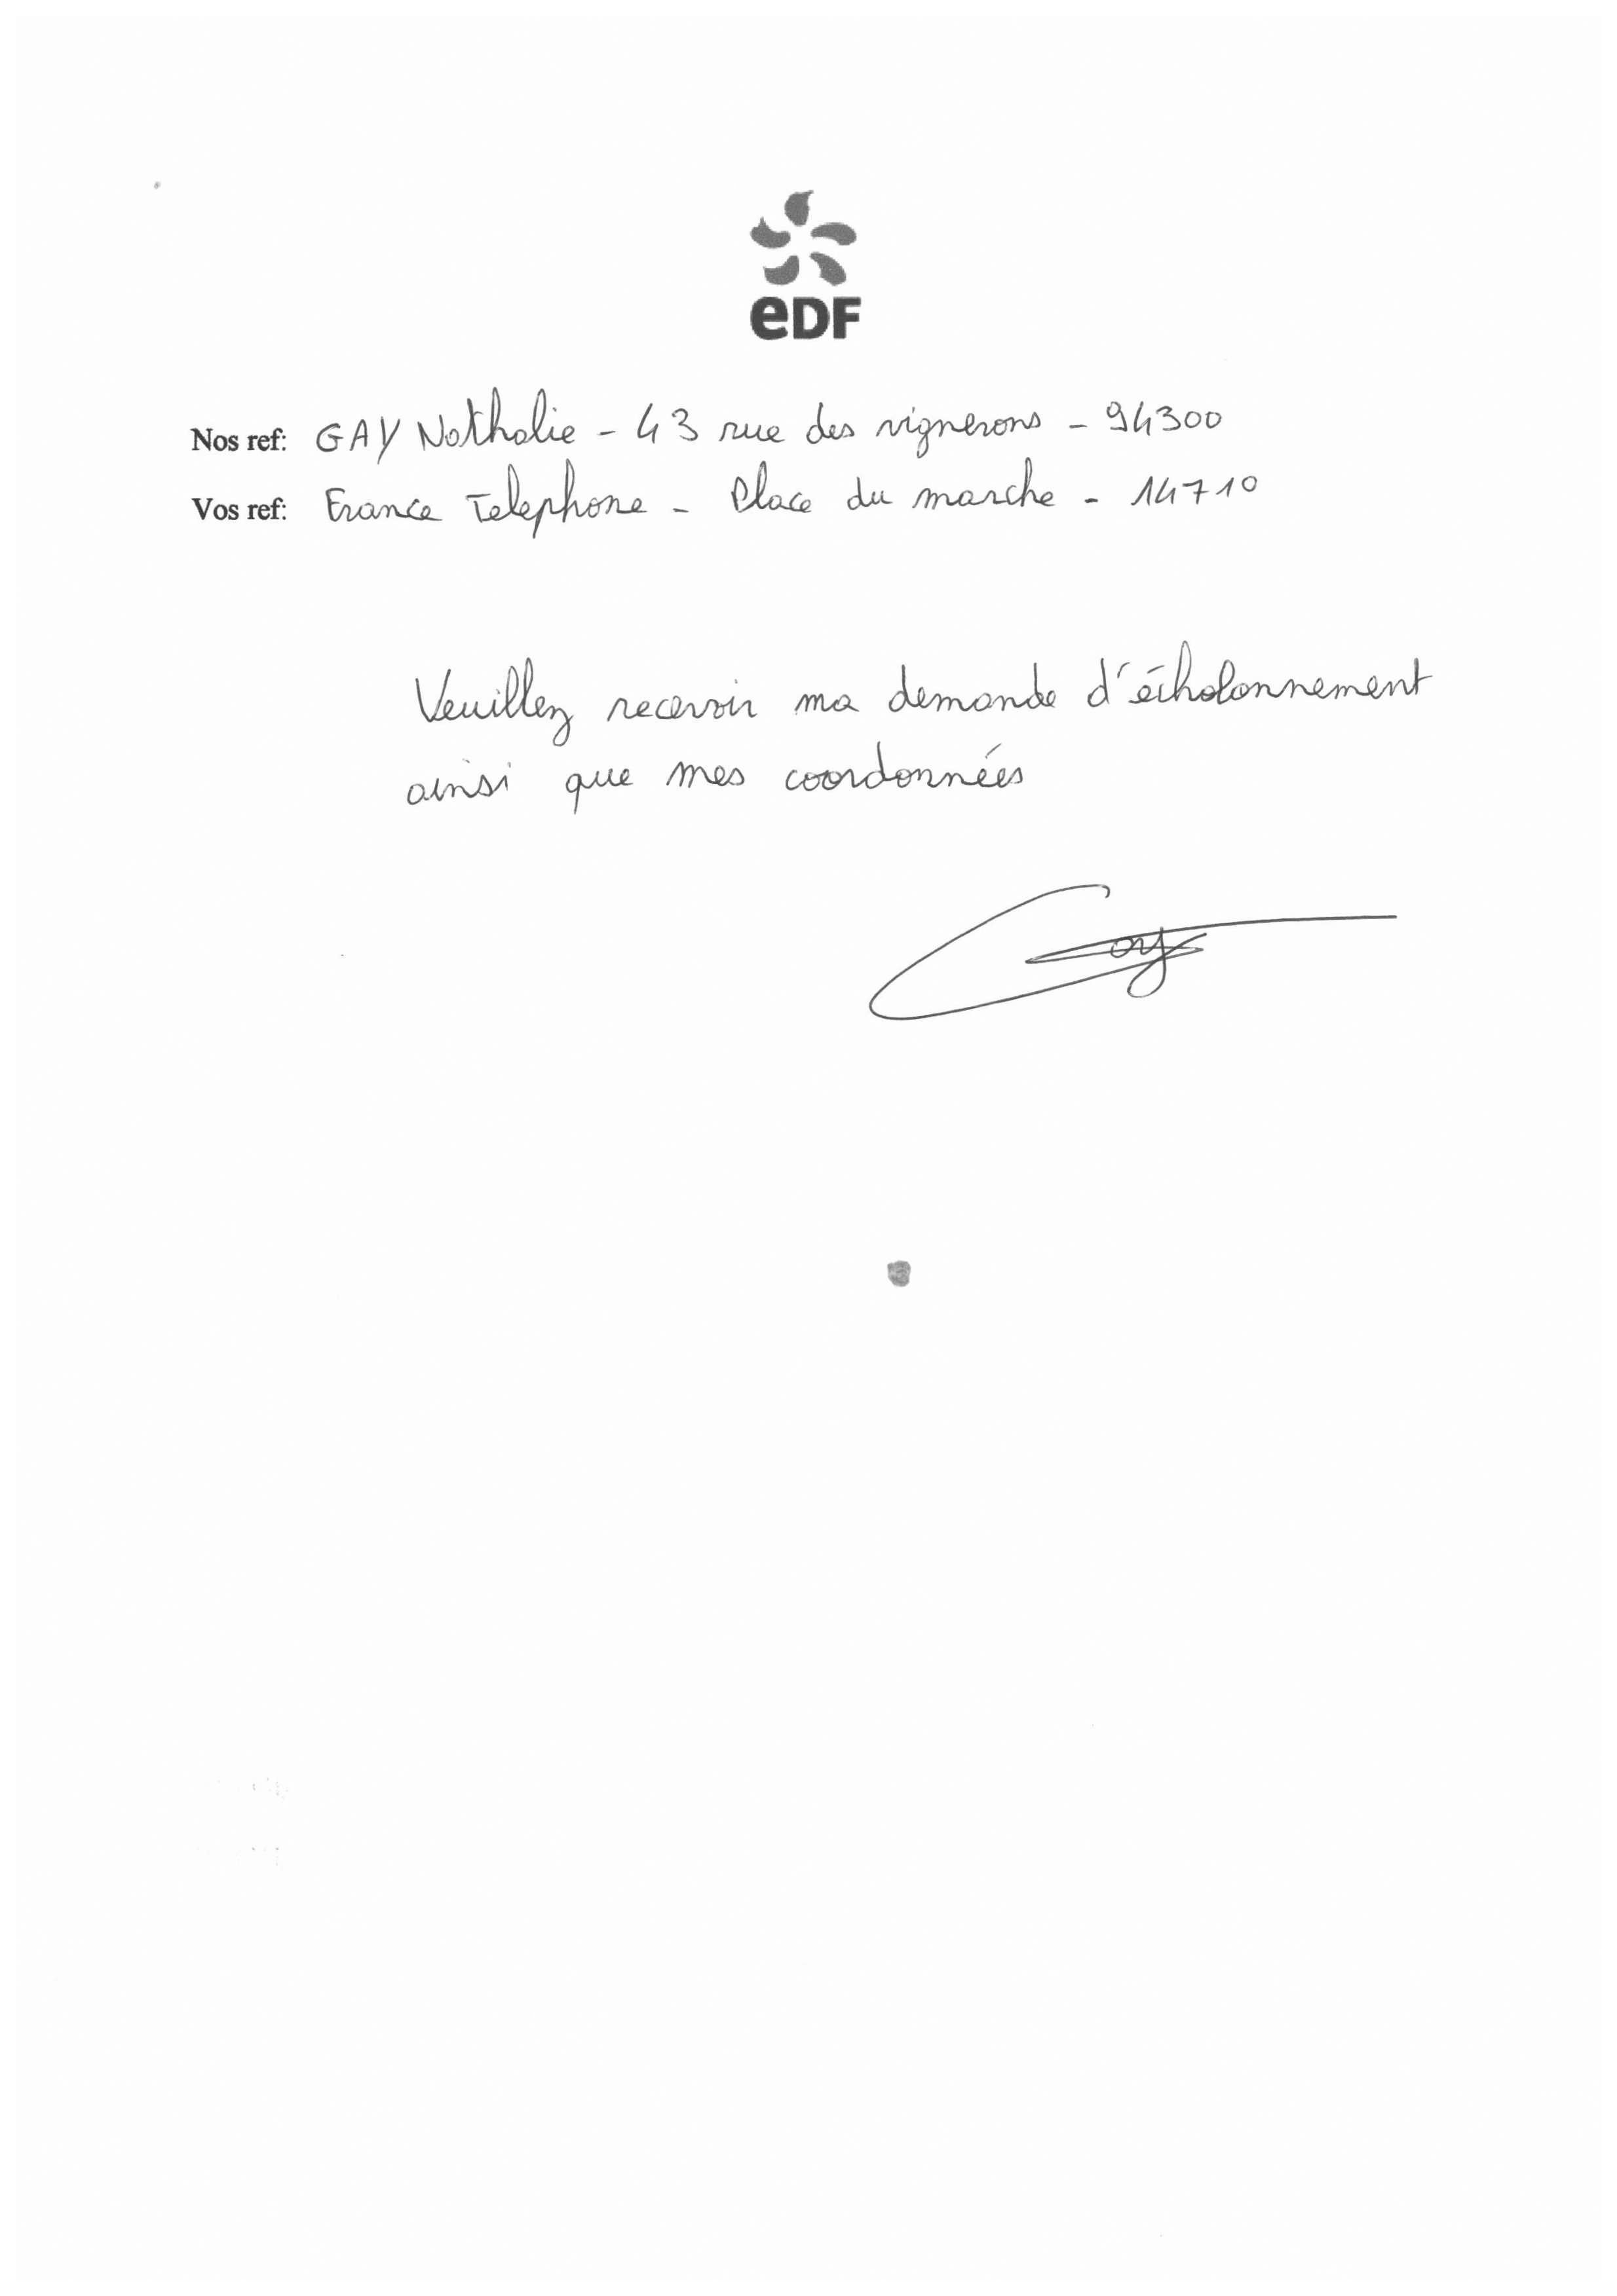 eDF
Nos ref: GAY Nathalie - 43 rue des vignerons - 94300
Vos ref: France Telephone - Place du marche - 14710
Veuillez recevoir ma demande d'écholonnement
ainsi que mes coordonnées
Gay